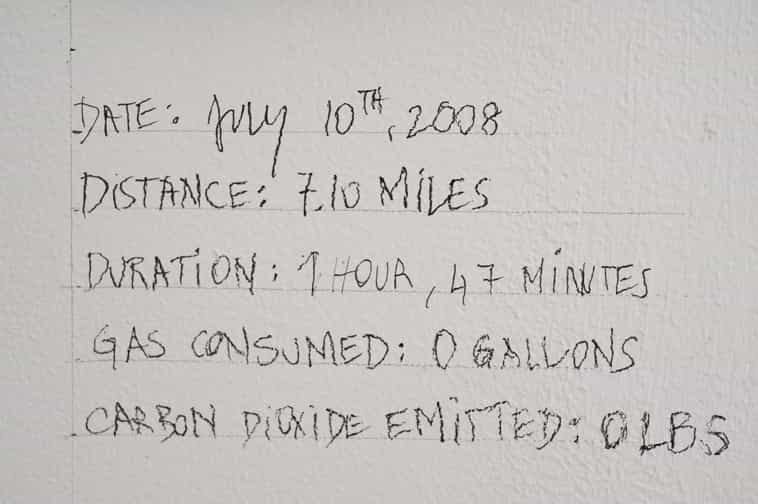 DATE: JULY 10TH, 2008
DISTANCE: 7.10 MILES
DURATION: 1 HOUR, 47 MINUTES
GAS CONSUMED: 0 GALLONS
CARBON DIOXIDE EMITTED: 0 LBS